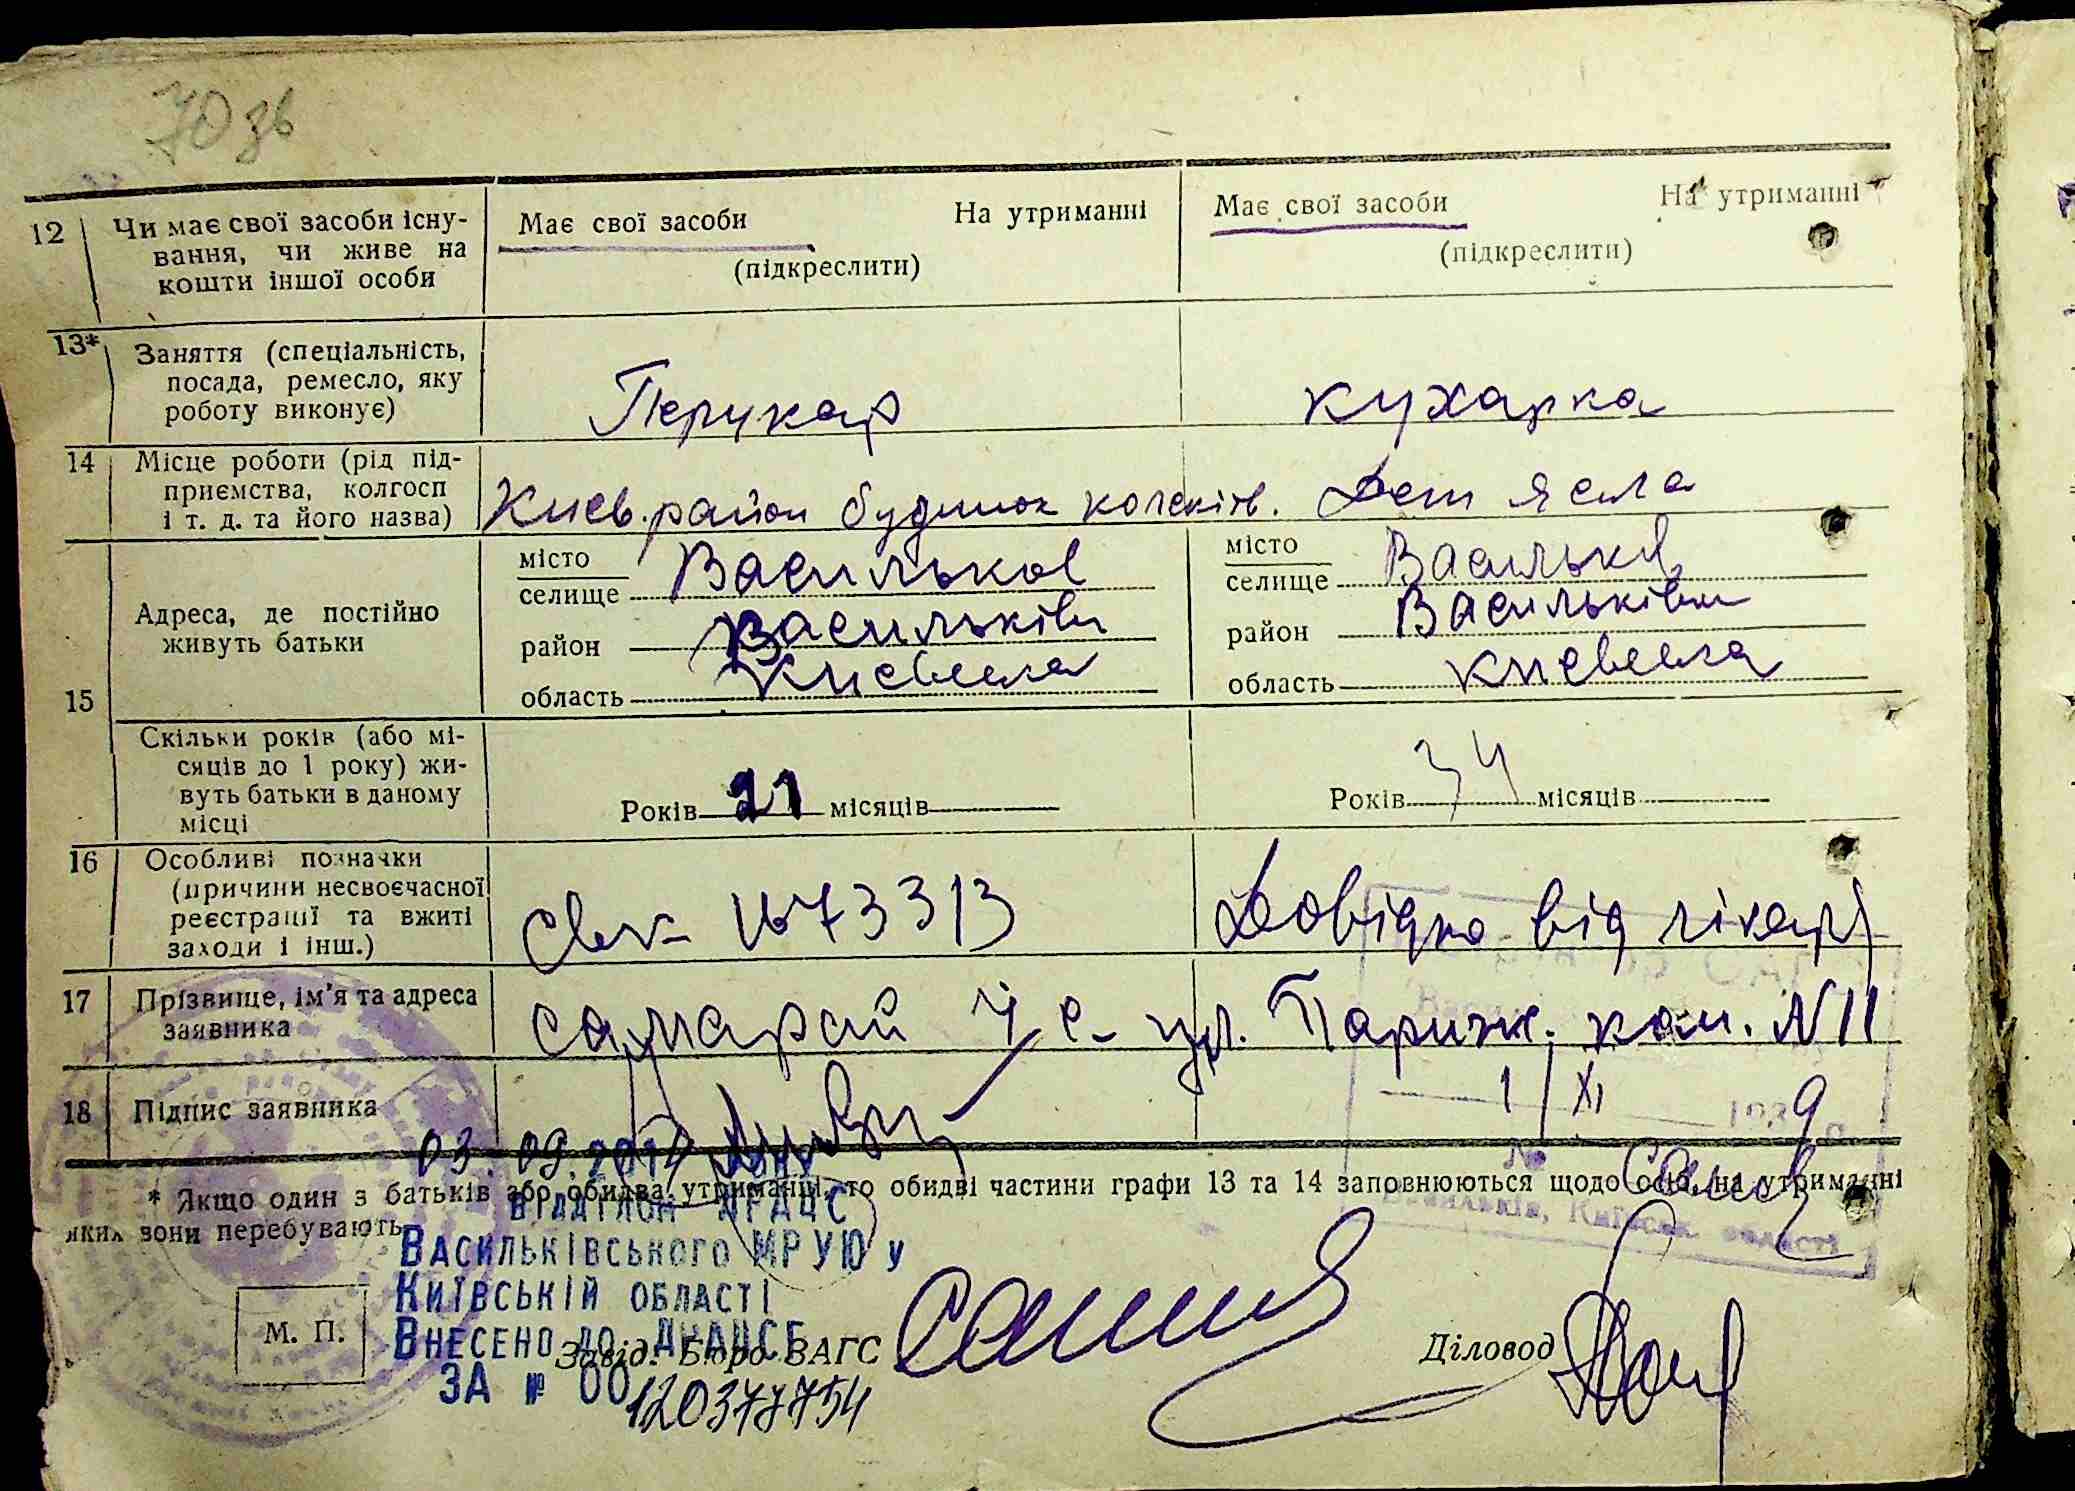 70 зв
12 Чи має свої засоби існу-
вання, чи живе на
кошти іншої особи
Має свої засоби На утриманні
(підкреслити)
Має свої засоби На утриманні
(підкреслити)
13* Заняття (спеціальність,
посада, ремесло, яку
роботу виконує)
Перукар
кухарка
14 Місце роботи (рід під-
приємства, колгосп
і т. д. та його назва)
Киев. район будинок колектив.
Дет ясла
15
Адреса, де постійно
живуть батьки
місто
селище Васильков
район Васильківськ
область Киевская
місто
селище Васильків
район Васильківськ
область Киевская
Скільки років (або мі-
сяців до 1 року) жи-
вуть батьки в даному
місці
Років 21 місяців
Років 34 місяців
16 Особливі позначки
(причини несвоєчасної
реєстрації та вжиті
заходи і інш.)
№73313
Довідка від лікаря
17 Прізвище, ім'я та адреса
заявника
Самарай
ул. Париж. ком. N11
18 Підпис заявника
1 XI 1939 р.
№
Васильків, Київськ. області
* Якщо один з батьків або обидва на утриманні, то обидві частини графи 13 та 14 заповнюються щодо осіб, на утриманні
яких вони перебувають.
03.09.2012
ВІДДІЛОМ ДРАЦС
ВАСИЛЬКІВСЬКОГО МРУЮ У
КИЇВСЬКІЙ ОБЛАСТІ
ВНЕСЕНО ДО ДРАЦСГ
ЗА № 00120377754
М. П.
Завід. Бюро ЗАГС
Діловод